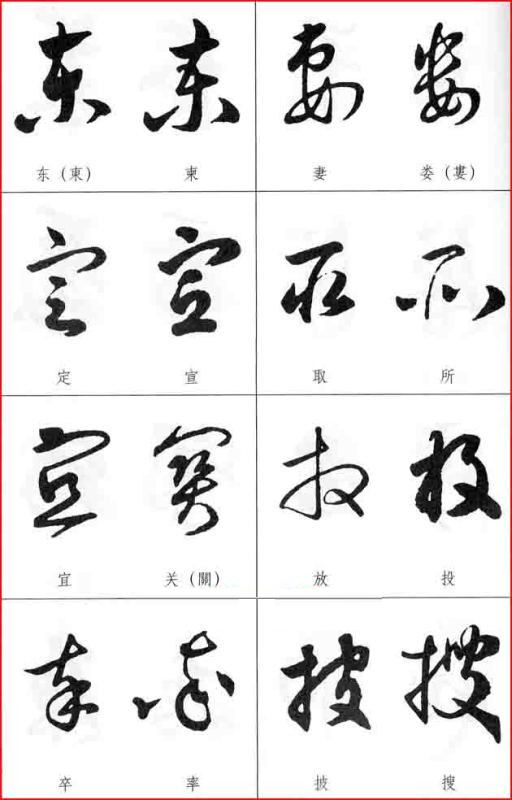 东（東） 柬 妻 娄（婁）
定 宣 取 所
宜 关（關） 放 投
卒 率 披 搜